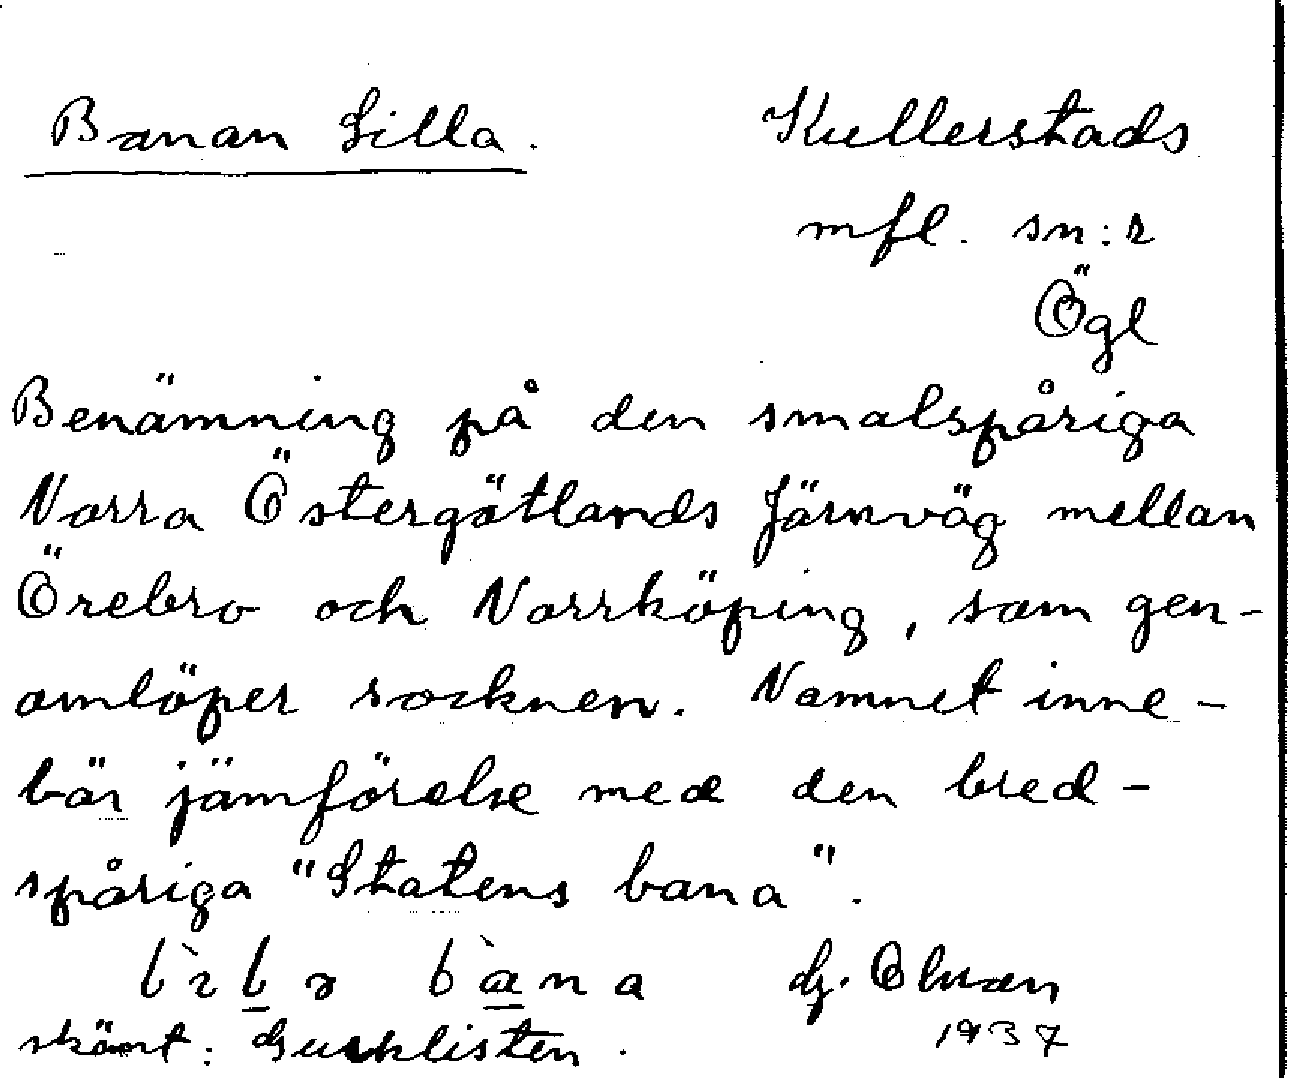 Banan Lilla. Kullerstads
mfl. sn:r
Ögl
Benämning på den smalspåriga
Norra Östergötlands Järnväg mellan
Örebro och Norrköping, som gen-
omlöper socknen. Namnet inne-
bär jämförelse med den bred-
spåriga "Statens bana".
bana G.
skämt: Gurklisten. 1937